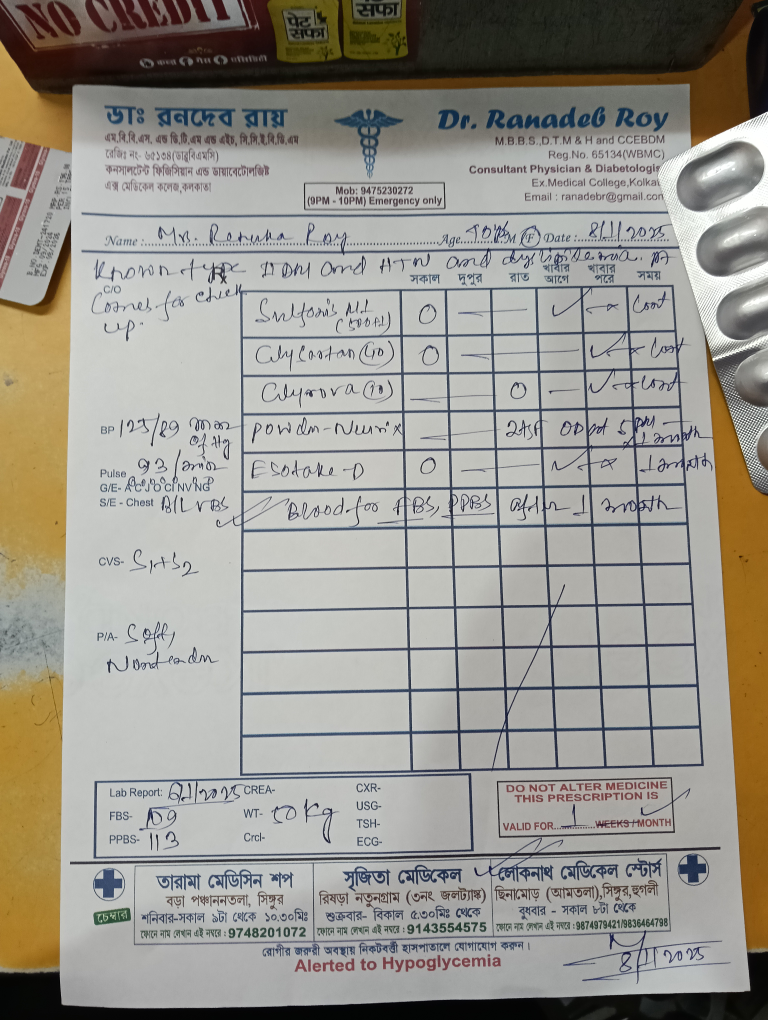 NO CREDIT
পেট
সফা
সফা
ডাঃ রনদেব রায়
এম.বি.বি.এস, এন্ড ডি.টি.এম এন্ড এইচ, সি.সি.ই.বি.ডি.এম
রেজিঃ নং- ৬৫১৩৪(ডাব্লুবিএমসি)
কনসালটেন্ট ফিজিসিয়ান এন্ড ডায়াবেটোলজিষ্ট
এক্স মেডিকেল কলেজ,কলকাতা
Dr. Ranadeb Roy
M.B.B.S.,D.T.M & H and CCEBDM
Reg.No. 65134(WBMC)
Consultant Physician & Diabetologis
Ex.Medical College,Kolkat
Email : ranadebr@gmail.com
Mob: 9475230272
(9PM - 10PM) Emergency only
Name : Mrs. Renuka Roy Age M F Date : 8/1/2025
Known of type II DM and HTN and dyslipidemia.
C/O
Comes for check
up.
সকাল দুপুর রাত খাবার আগে খাবার পরে সময়
(500) O — ✓ Cont
(40) O — ✓ Cont
(10) — O — ✓ Cont
Powdn-Neurix — 2TSF OD at 5 PM 1 month
Esotake-D O — ✓ 1 month
Blood for FBS, PPBS after 1 month
BP 125/89 mm of Hg
Pulse 93/min
G/E-
S/E - Chest B/L VBS
CVS- S1+S2
P/A- Soft,
Nontendn
Lab Report: 6/1/2025 CREA- CXR-
FBS- 109 WT- 50 kg USG-
PPBS- 113 Crcl- TSH-
ECG-
DO NOT ALTER MEDICINE
THIS PRESCRIPTION IS
VALID FOR 1 WEEKS / MONTH
চেম্বার
তারামা মেডিসিন শপ
বড়া পঞ্চাননতলা, সিঙ্গুর
শনিবার-সকাল ৯টা থেকে ১০.৩০মিঃ
ফোনে নাম লেখান এই নম্বরে : 9748201072
সৃজিতা মেডিকেল
রিষড়া নতুনগ্রাম (৩নং জলট্যাঙ্ক)
শুক্রবার- বিকাল ৫.৩০মিঃ থেকে
ফোনে নাম লেখান এই নম্বরে : 9143554575
লোকনাথ মেডিকেল স্টোর্স
ছিনামোড় (আমতলা),সিঙ্গুর,হুগলী
বুধবার - সকাল ৮টা থেকে
ফোনে নাম লেখান এই নম্বরে :9874979421/9836464798
রোগীর জরুরী অবস্থায় নিকটবর্তী হাসপাতালে যোগাযোগ করুন।
Alerted to Hypoglycemia
8/1/2025